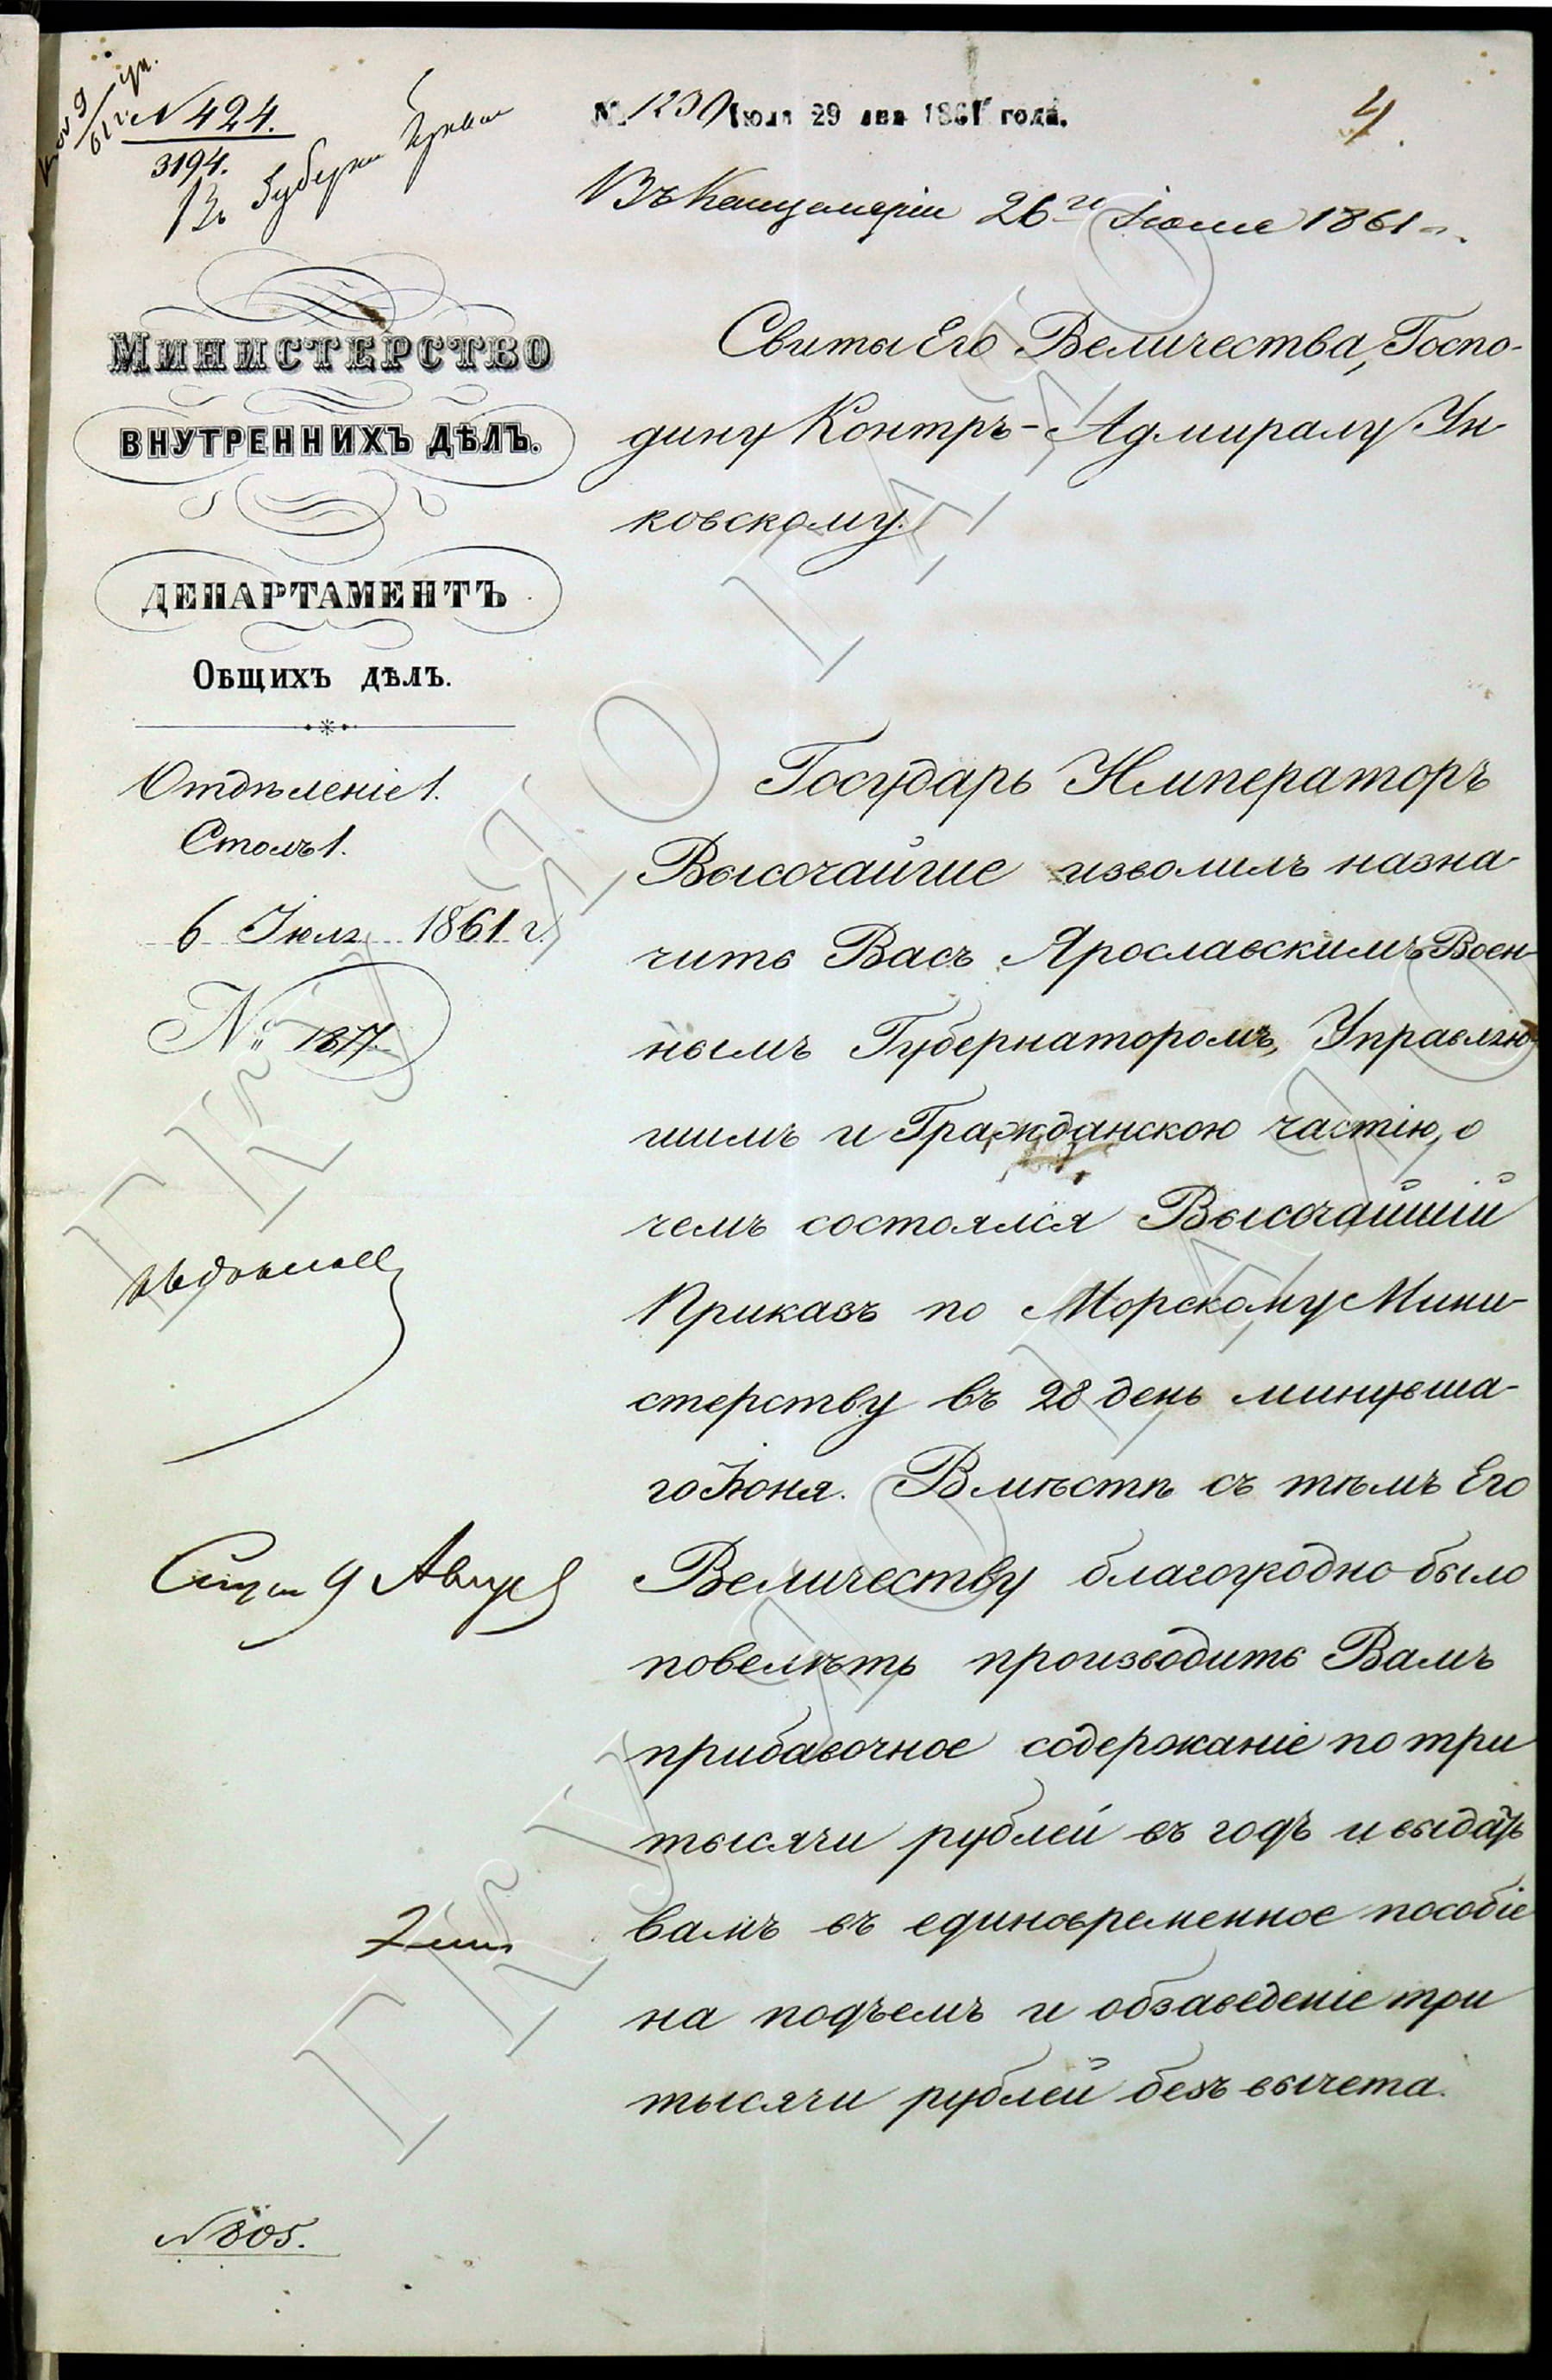 № 424.
3194.
№ 1230 Іюля 29 дня 1861 года.
4.
Въ Канцелярiи 26го Iюля 1861 г.
МИНИСТЕРСТВО
ВНУТРЕННИХЪ ДѢЛЪ.
ДЕПАРТАМЕНТЪ
ОБЩИХЪ ДѢЛЪ.
Отдѣленіе 1.
Столъ 1.
6 Іюля 1861 г.
№ 1877
Свиты Его Величества, Госпо-
дину Контръ-Адмиралу Ун-
ковскому.
Государь Императоръ
Высочайше изволилъ назна-
чить Васъ Ярославскимъ Воен-
нымъ Губернаторомъ, Управляю-
щимъ и Гражданскою частію, о
чемъ состоялся Высочайшій
Приказъ по Морскому Мини-
стерству въ 28 день минувша-
го Іюня. Вмѣстѣ съ тѣмъ Его
Величеству благоугодно было
повелѣть производить Вамъ
прибавочное содержаніе по три
тысячи рублей въ годъ и выдать
вамъ въ единовременное пособіе
на подъемъ и обзаведеніе три
тысячи рублей безъ вычета.
9 Август
№ 805.